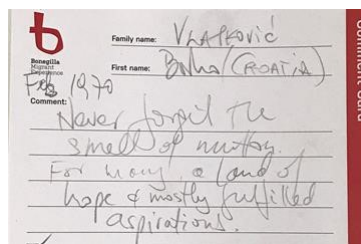 Bonegilla
Migrant
Experience
Family name: VLATKOVIĆ
First name: (CROATIA)
Feb 1970
Comment:
Never forget the
smell of mutton.
For many, a land of
hope & mostly fulfilled
aspirations.